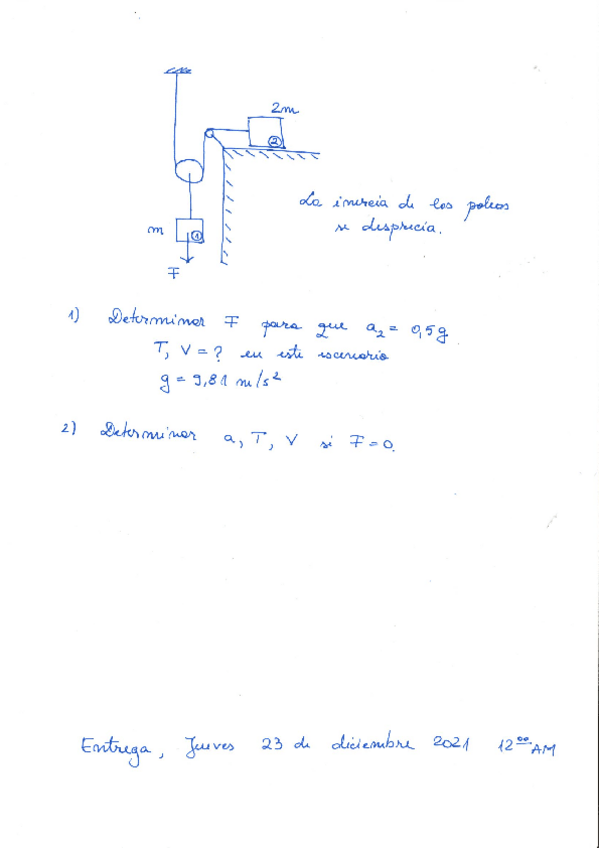 2m
2
La inercia de las poleas
se desprecia.
m
1
F
1) Determinar F para que a₂ = 0,5g
T, V = ? en este escenario
g = 9,81 m/s²
2) Determinar a, T, V si F = 0.
Entrega, Jueves 23 de diciembre 2021 12⁰⁰ AM